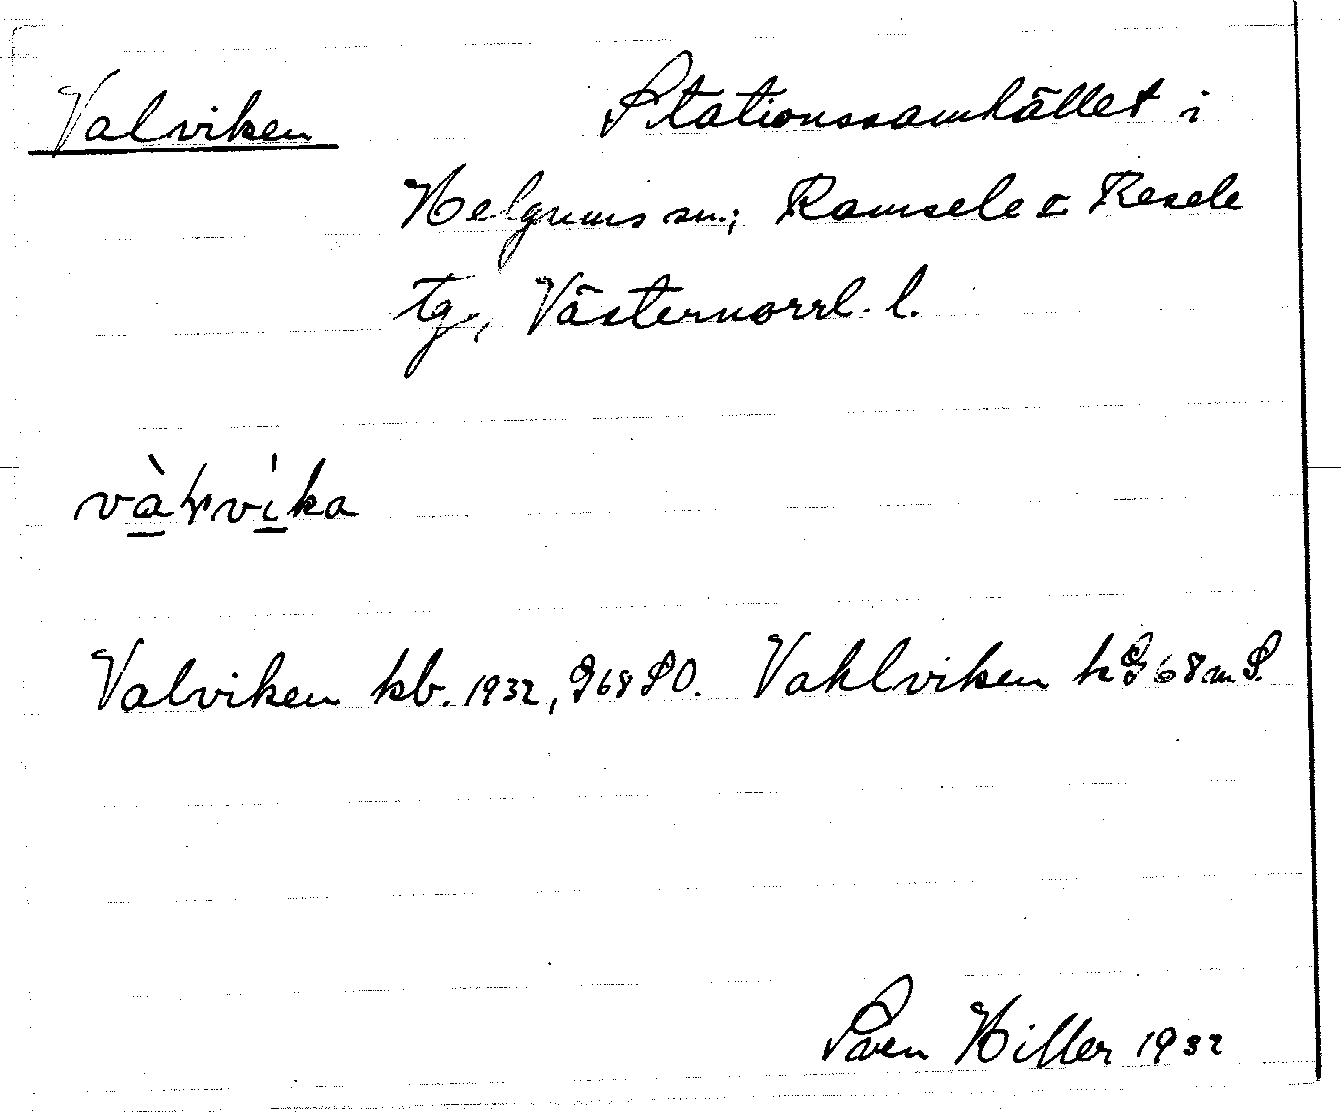 Valviken Stationssamhället i
Helgums sn; Ramsele & Resele
tg, Västernorrl. l.
vàɫvíka
Valviken kb. 1932, G68SO. Vahlviken k G68m S.
Sven Hiller 1932